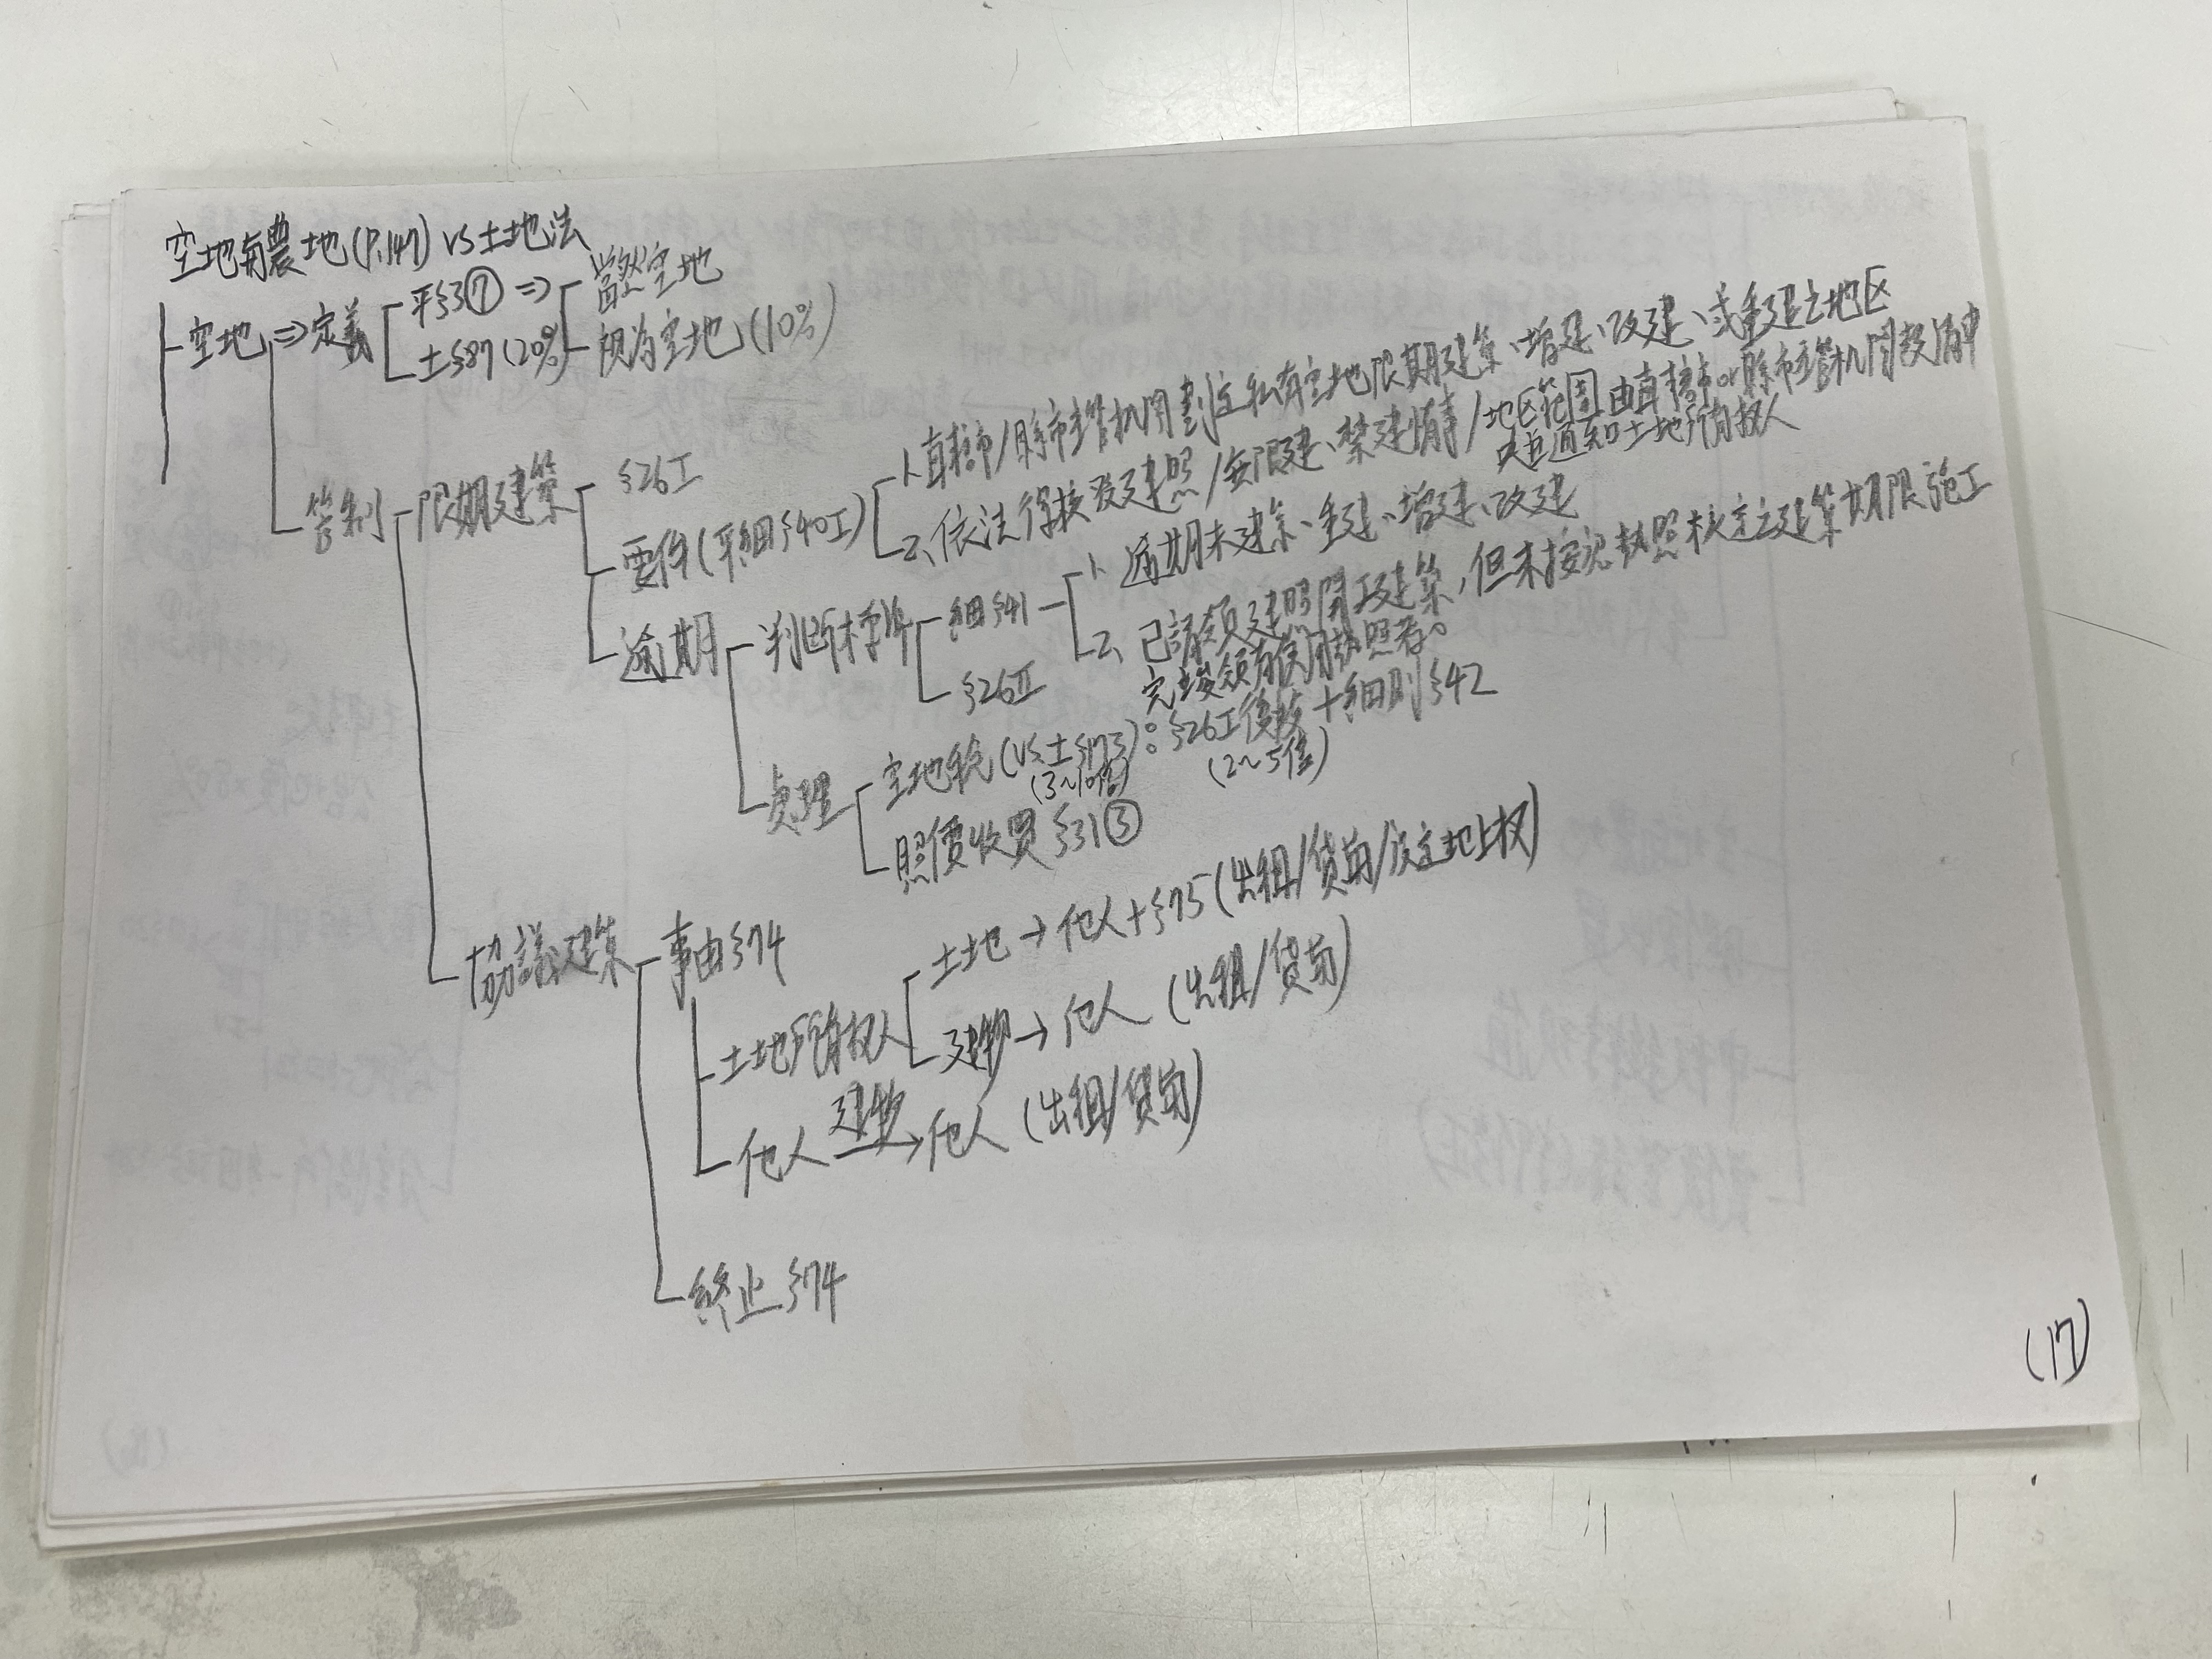 空地與農地(P.147) vs 土地法
空地 => 定義
平§3⑦ =>
當然空地
視為空地(10%)
土§87(20%)
管制
限期建築
§26I
要件(平細§40I)
1、直轄市/縣市主管机関劃定私有空地限期建築、增建、改建、或重建之地区
2、依法得核发建照/無限建、禁建情事/地区範囲由直轄市or縣市主管机関報
通知土地所有权人
逾期
判断標準
細§41
1、逾期未建築、重建、增建、改建
2、已請領建照開工建築,但未按照執照核定之建築期限施工
完竣領有使用執照者。
§26II
處理
空地稅(vs土§173):§26I後段+細則§42
(3~10倍)
(2~5倍)
照價收買§31③
協議建築
事由§74
土地所有权人
土地→他人+§75(出租/貸與/設定地上权)
建物→他人(出租/貸與)
他人 建物→他人(出租/貸與)
終止§74
(17)